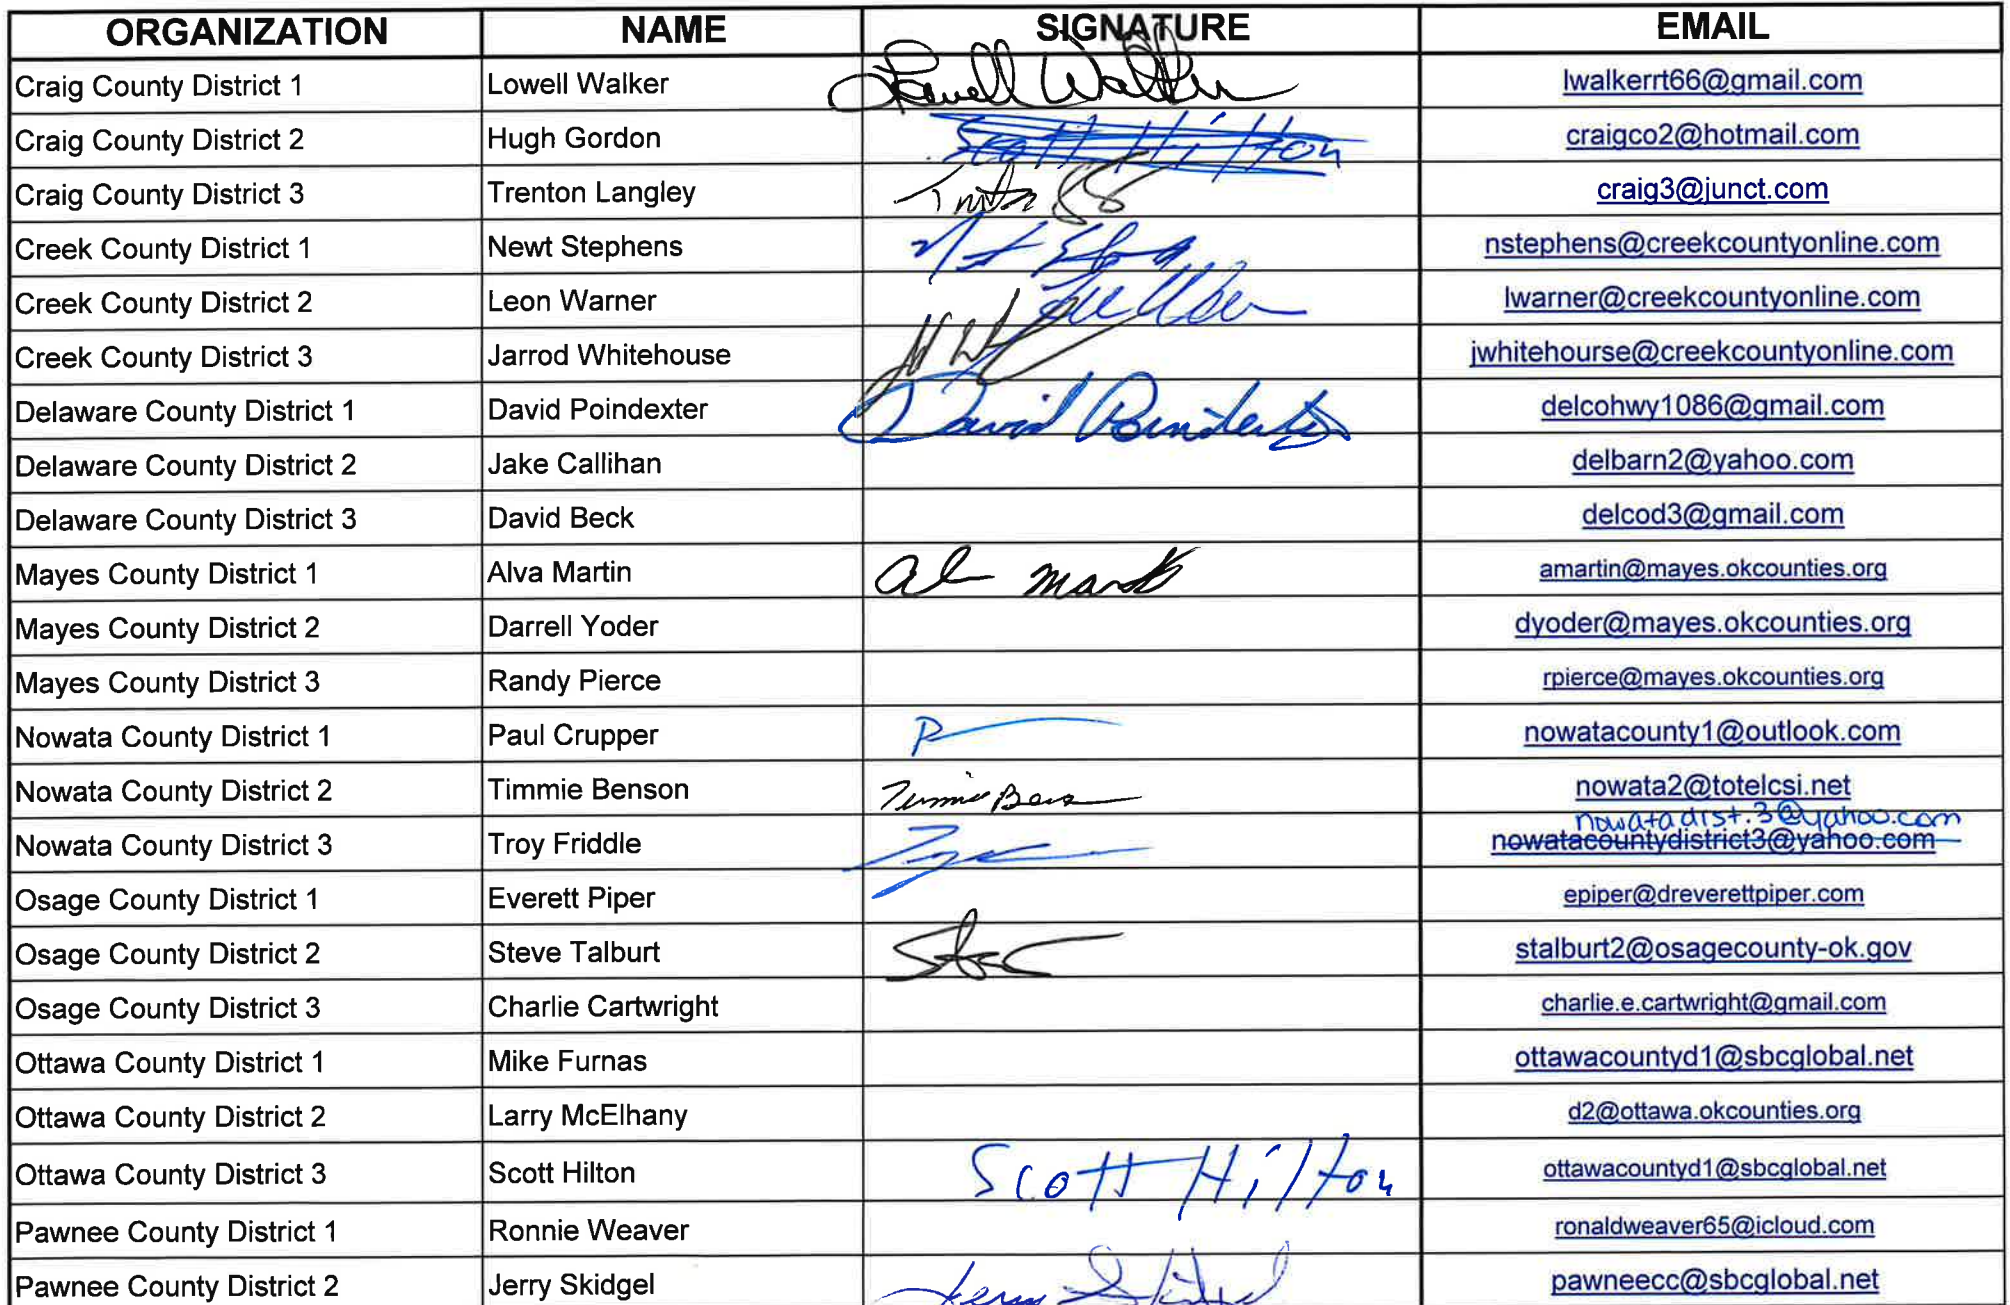 ORGANIZATION NAME SIGNATURE EMAIL
Craig County District 1 Lowell Walker Lowell Walker lwalkerrt66@gmail.com
Craig County District 2 Hugh Gordon Scott Hilton craigco2@hotmail.com
Craig County District 3 Trenton Langley craig3@junct.com
Creek County District 1 Newt Stephens nstephens@creekcountyonline.com
Creek County District 2 Leon Warner lwarner@creekcountyonline.com
Creek County District 3 Jarrod Whitehouse jwhitehourse@creekcountyonline.com
Delaware County District 1 David Poindexter David Poindexter delcohwy1086@gmail.com
Delaware County District 2 Jake Callihan delbarn2@yahoo.com
Delaware County District 3 David Beck delcod3@gmail.com
Mayes County District 1 Alva Martin amartin@mayes.okcounties.org
Mayes County District 2 Darrell Yoder dyoder@mayes.okcounties.org
Mayes County District 3 Randy Pierce rpierce@mayes.okcounties.org
Nowata County District 1 Paul Crupper nowatacounty1@outlook.com
Nowata County District 2 Timmie Benson nowata2@totelcsi.net
nowatadist.3@yahoo.com
Nowata County District 3 Troy Friddle nowatacountydistrict3@yahoo.com
Osage County District 1 Everett Piper epiper@dreverettpiper.com
Osage County District 2 Steve Talburt stalburt2@osagecounty-ok.gov
Osage County District 3 Charlie Cartwright charlie.e.cartwright@gmail.com
Ottawa County District 1 Mike Furnas ottawacountyd1@sbcglobal.net
Ottawa County District 2 Larry McElhany d2@ottawa.okcounties.org
Ottawa County District 3 Scott Hilton Scott Hilton ottawacountyd1@sbcglobal.net
Pawnee County District 1 Ronnie Weaver ronaldweaver65@icloud.com
Pawnee County District 2 Jerry Skidgel Jerry Skidgel pawneecc@sbcglobal.net